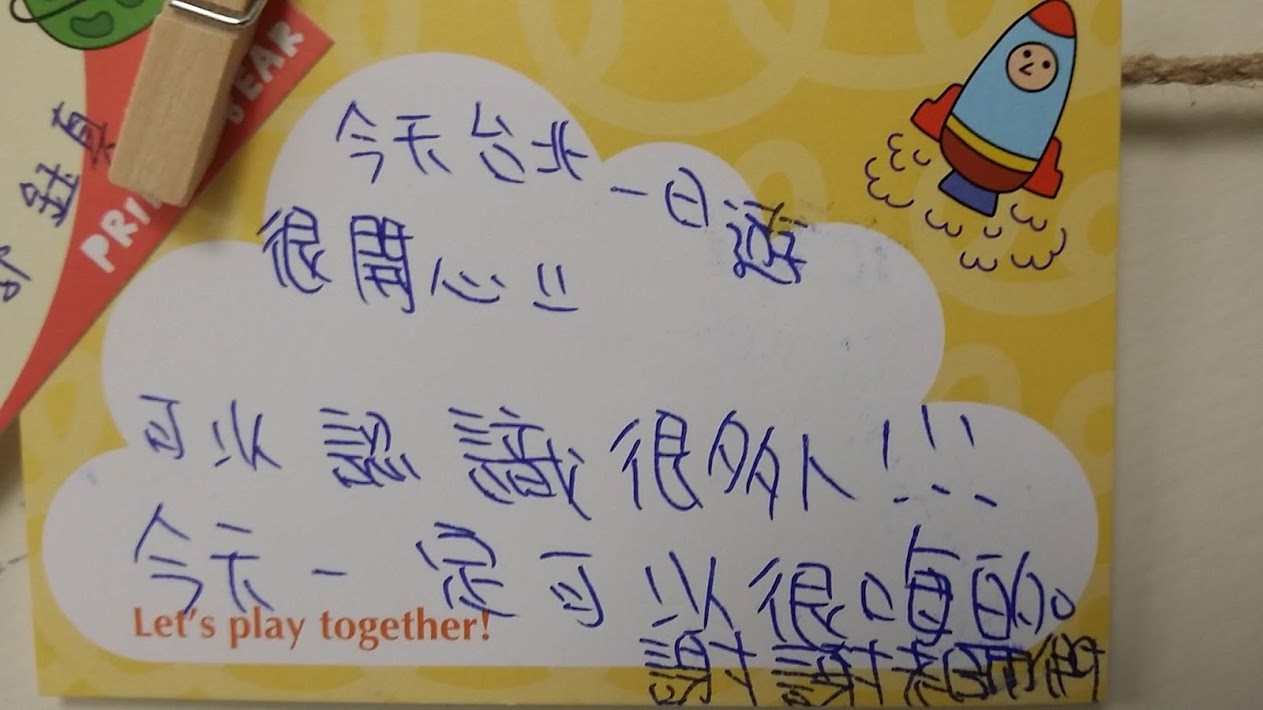 今天台北一日遊
很開心!!
可以認識很多人!!!
今天一定可以很嗨的。
Let's play together!
謝謝老師們
PRI
EAR